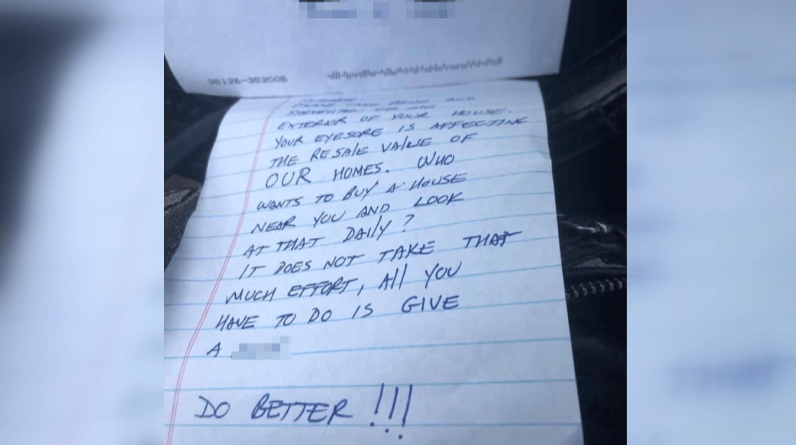 35126-352008
PLEASE TAKE PRIDE AND
EXTERIOR OF YOUR HOUSE.
YOUR EYESORE IS AFFECTING
THE RESALE VALUE OF
OUR HOMES. WHO
WANTS TO BUY A HOUSE
NEAR YOU AND LOOK
AT THAT DAILY?
IT DOES NOT TAKE THAT
MUCH EFFORT, All YOU
HAVE TO DO IS GIVE
A
DO BETTER!!!